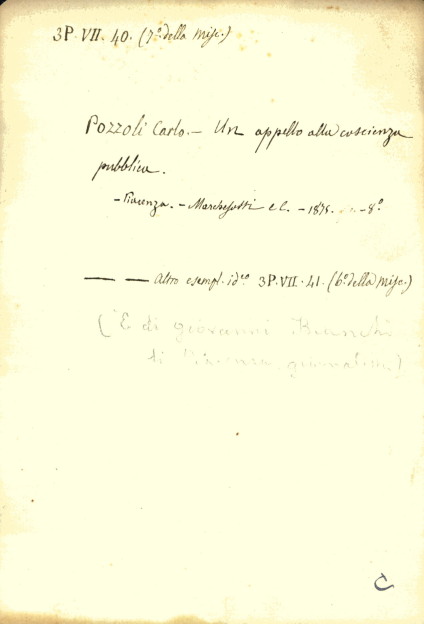 3P. VII. 40. (7º della Misc.)
Pozzoli Carlo. — Un appello alla coscienza
pubblica.
— Piacenza. — Marchesotti e C. — 1875. — 8º
— — Altro esempl. id.co 3P. VII. 41. (6º della Misc.)
(È di Giovanni Bianchi
di Piacenza, giornalista)
C